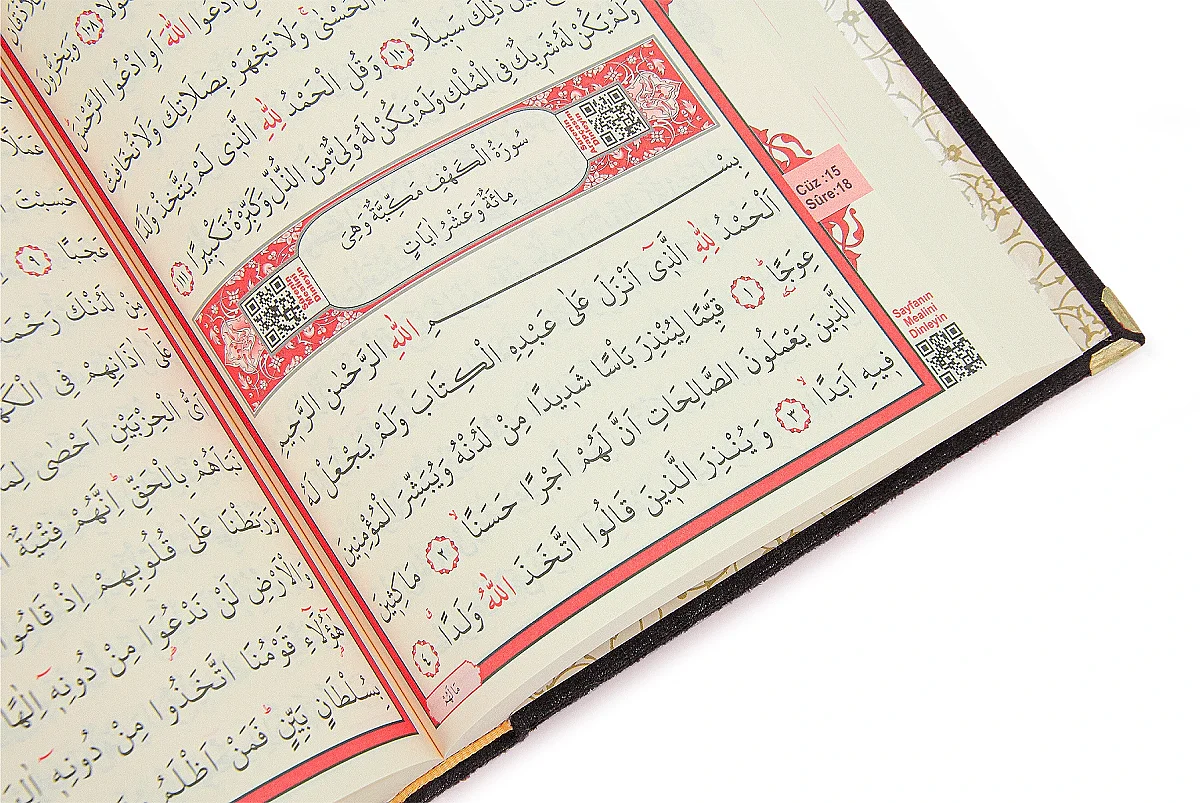 أَوِ ادْعُوا الرَّحْمٰنَ
الْحُسْنٰى وَلَا تَجْهَرْ بِصَلَاتِكَ وَلَا تُخَافِتْ
بَيْنَ ذٰلِكَ سَبِيلًا ﴿١١٠﴾ وَقُلِ الْحَمْدُ لِلّٰهِ الَّذِى لَمْ يَتَّخِذْ وَلَدًا
وَلَمْ يَكُنْ لَهُ شَرِيكٌ فِى الْمُلْكِ وَلَمْ يَكُنْ لَهُ وَلِىٌّ مِنَ الذُّلِّ وَكَبِّرْهُ تَكْبِيرًا ﴿١١١﴾
سُورَةُ الْكَهْفِ مَكِّيَّةٌ وَهِىَ
مِائَةٌ وَعَشْرُ اٰيَاتٍ
Sûrenin
Arapçasını
Dinleyin
Sûrenin
Mealini
Dinleyin
Cüz :15
Sûre:18
بِسْمِ اللّٰهِ الرَّحْمٰنِ الرَّحِيمِ
اَلْحَمْدُ لِلّٰهِ الَّذِٓى اَنْزَلَ عَلٰى عَبْدِهِ الْكِتَابَ وَلَمْ يَجْعَلْ لَهُ
عِوَجًا ﴿١﴾ قَيِّمًا لِيُنْذِرَ بَأْسًا شَدِيدًا مِنْ لَدُنْهُ وَيُبَشِّرَ الْمُؤْمِنِينَ
الَّذِينَ يَعْمَلُونَ الصَّالِحَاتِ اَنَّ لَهُمْ اَجْرًا حَسَنًا ﴿٢﴾ مَاكِثِينَ
فِيهِ اَبَدًا ﴿٣﴾ وَيُنْذِرَ الَّذِينَ قَالُوا اتَّخَذَ اللّٰهُ وَلَدًا ﴿٤﴾
مَالَهُمْ
Sayfanın
Mealini
Dinleyin
حَسِبْتَ
عَجَبًا ﴿٩﴾
مِنْ لَدُنْكَ رَحْمَةً
عَلٰٓى اٰذَانِهِمْ فِى الْكَهْفِ
اَىُّ الْحِزْبَيْنِ اَحْصٰى لِمَا
نَبَاَهُمْ بِالْحَقِّ اِنَّهُمْ فِتْيَةٌ
وَرَبَطْنَا عَلٰى قُلُوبِهِمْ اِذْ قَامُوا
وَالْاَرْضِ لَنْ نَدْعُوَا مِنْ دُونِهٓ اِلٰهًا
هٰٓؤُلَٓاءِ قَوْمُنَا اتَّخَذُوا مِنْ دُونِهٓ اٰلِهَةً
بِسُلْطَانٍ بَيِّنٍ فَمَنْ اَظْلَمُ